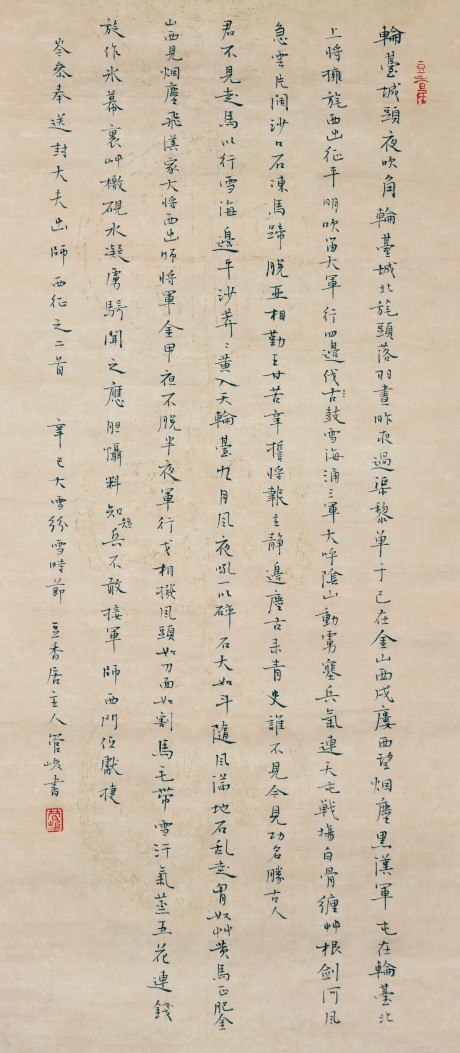 豆香居
輪臺城頭夜吹角輪臺城北旄頭落羽書昨夜過渠黎單于已在金山西戍樓西望烟塵黑漢軍屯在輪臺北
上將擁旄西出征平明吹笛大軍行四邊伐古鼓雪海涌三軍大呼陰山動虜塞兵氣連天屯戰場白骨纏艸根劍河風
急雲片闊沙口石凍馬蹄脫亞相勤王甘苦辛誓將報主靜邊塵古來青史誰不見今見功名勝古人
君不見走馬川行雪海邊平沙莽ミ黃入天輪臺九月風夜吼一川碎石大如斗隨風滿地石乱走匈奴艸黃馬正肥金
山西見烟塵飛漢家大將西出師將軍金甲夜不脫半夜軍行戈相撥風頭如刀面如割馬毛帶雪汗氣蒸五花連錢
旋作冰幕裏艸檄硯水凝虜騎聞之應胆懾料知短兵不敢接軍師西門佇獻捷
岑參奉送封大夫出師西征之二首 辛巳大雪紛雪時節 豆香居主人管峻書